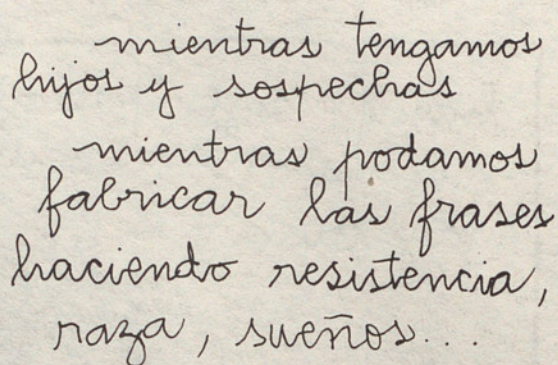 mientras tengamos
hijos y sospechas
mientras podamos
fabricar las frases
haciendo resistencia,
raza, sueños...